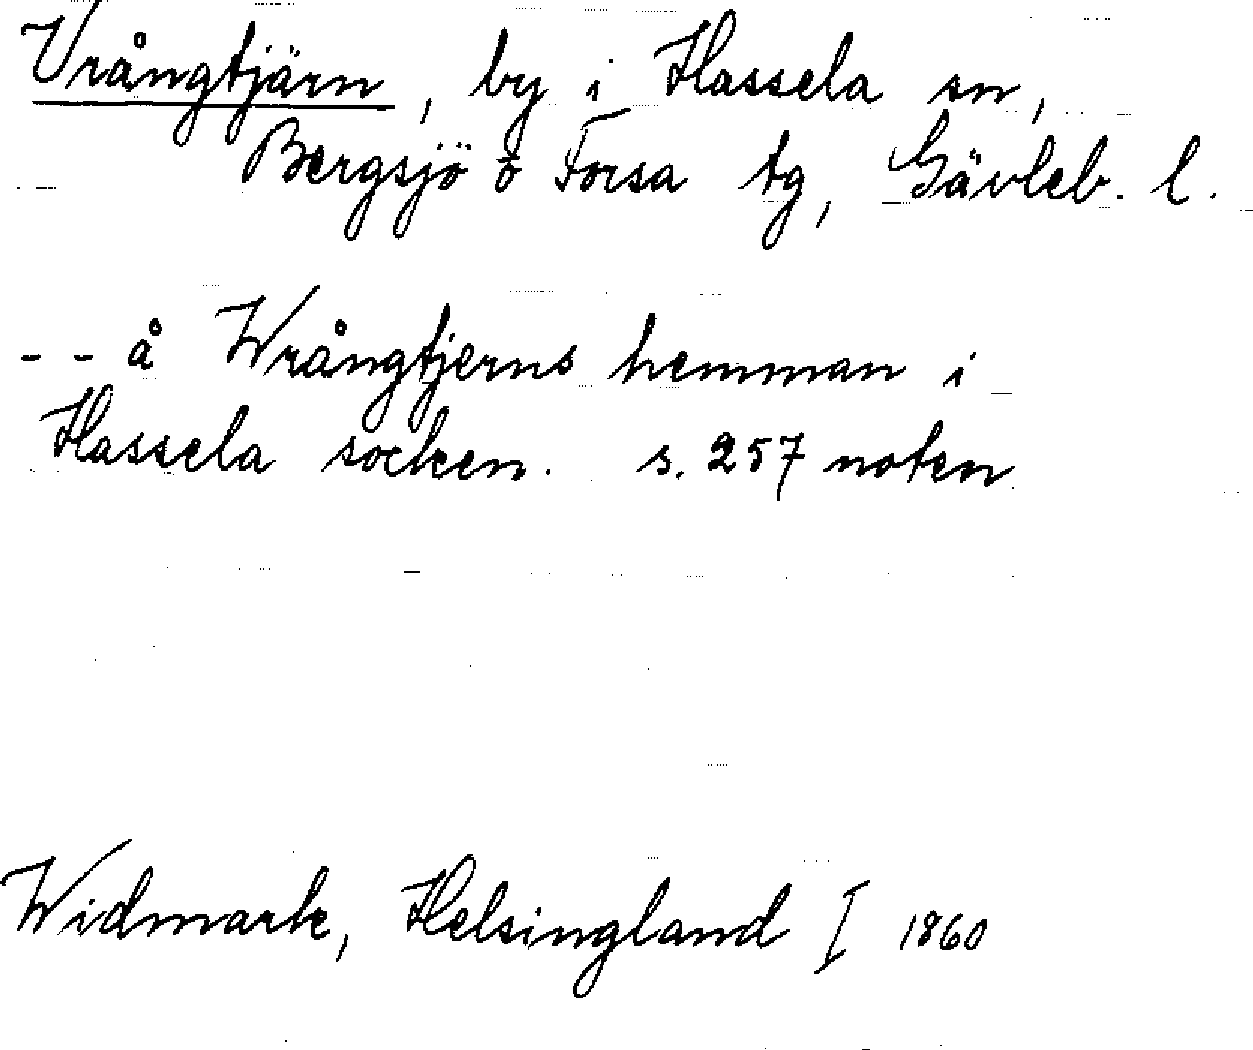 Vrångtjärn, by i Hassela sn,
Bergsjö o Forsa tg, Gävleb. l.
- - å Wrångtjerns hemman i
Hassela socken. s. 257 noten
Widmark, Helsingland I 1860